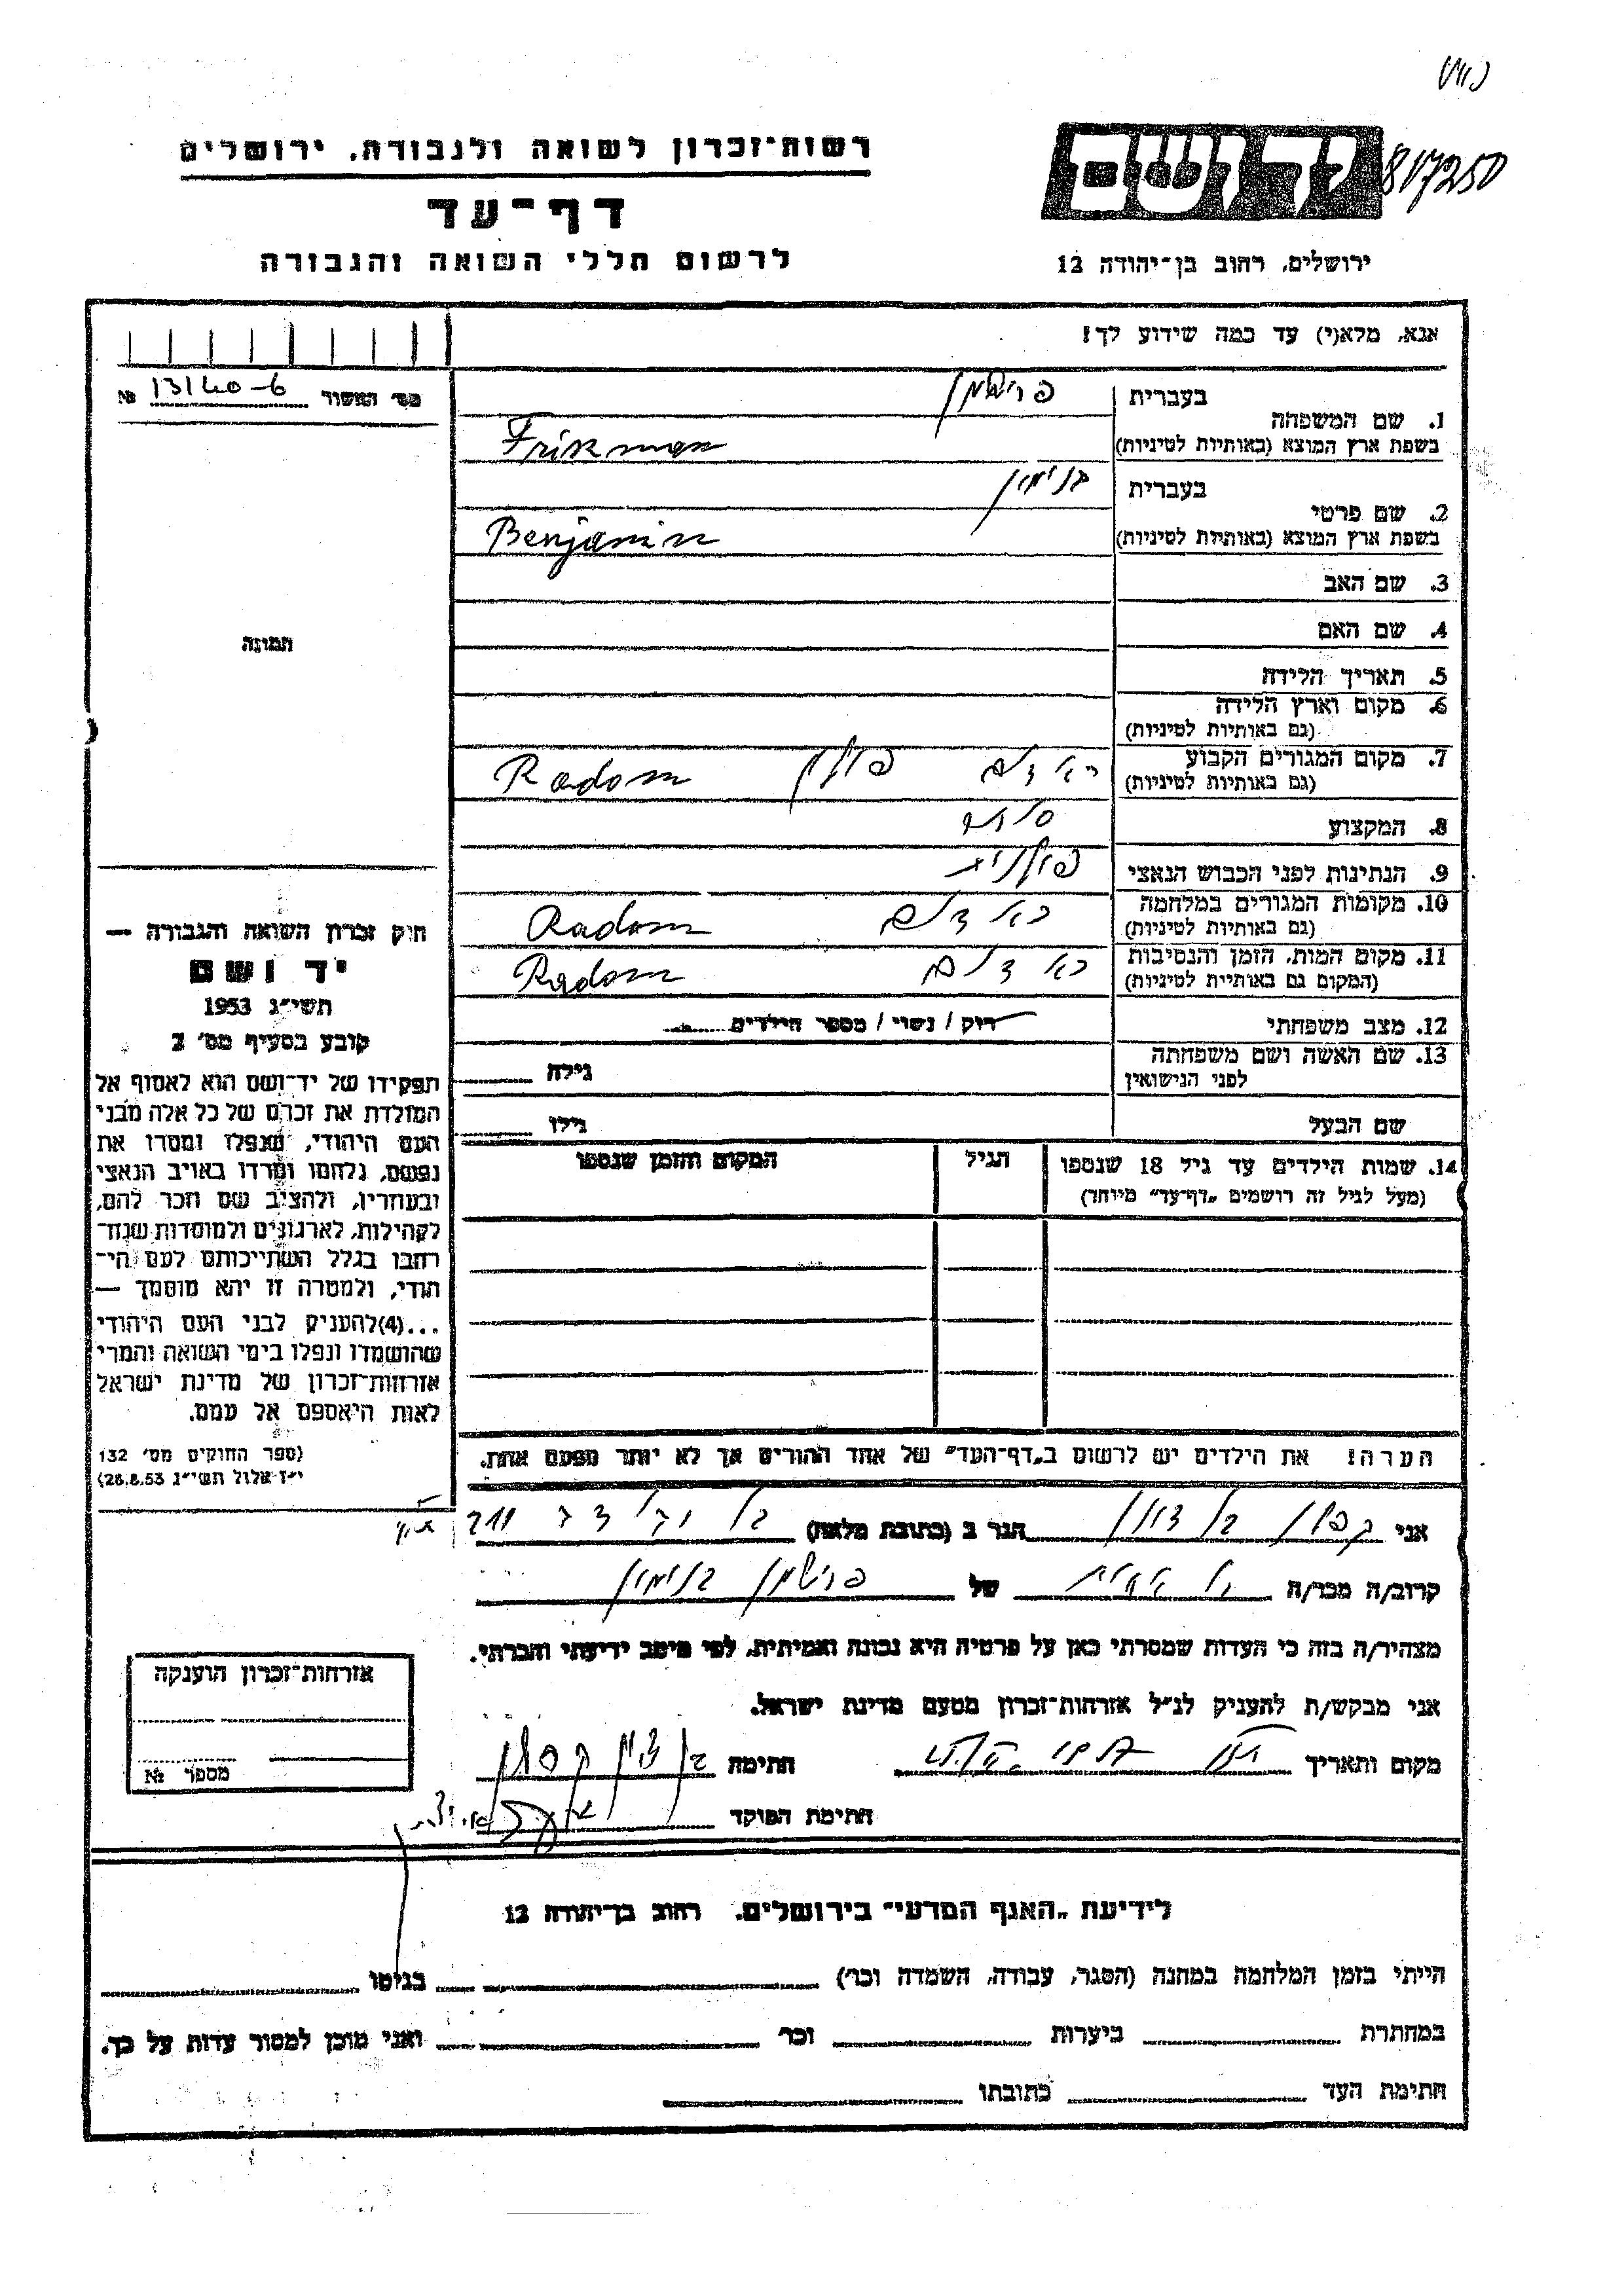 817250
רשות־זכרון לשואה ולגבורה, ירושלים
דף־עד
לרשום חללי השואה והגבורה
יד ושם
ירושלים, רחוב בן־יהודה 12
אנא, מלא(י) עד כמה שידוע לך!
מס' האשור № 13140-6
תמונה
חוק זכרון השואה והגבורה —
יד ושם
תשי"ג 1953
קובע בסעיף מס' 2
תפקידו של יד־ושם הוא לאסוף אל
המולדת את זכרם של כל אלה מבני
העם היהודי, שנפלו ומסרו את
נפשם, נלחמו ומרדו באויב הנאצי
ובעוזריו, ולהציב שם וזכר להם,
לקהילות, לארגונים ולמוסדות שנח־
רבו בגלל השתייכותם לעם הי־
הודי, ולמטרה זו יהא מוסמך —
...(4) להעניק לבני העם היהודי
שהושמדו ונפלו בימי השואה והמרי
אזרחות־זכרון של מדינת ישראל
לאות היאספם אל עמם.
(ספר החוקים מס' 132
י"ז אלול תשי"ג 28.8.53)
בעברית פרישמן
1. שם המשפחה
בשפת ארץ המוצא (באותיות לטיניות) Friszman
בעברית בנימין
2. שם פרטי
בשפת ארץ המוצא (באותיות לטיניות) Benjamin
3. שם האב
4. שם האם
5. תאריך הלידה
6. מקום וארץ הלידה
(גם באותיות לטיניות)
7. מקום המגורים הקבוע ראדום פולין Radom
(גם באותיות לטיניות)
8. המקצוע סוחר
9. הנתינות לפני הכבוש הנאצי פולנית
10. מקומות המגורים במלחמה ראדום Radom
(גם באותיות לטיניות)
11. מקום המות, הזמן והנסיבות ראדום Radom
(המקום גם באותיות לטיניות)
12. מצב משפחתי רווק / נשוי / מספר הילדים
13. שם האשה ושם משפחתה
לפני הנישואין גילה
שם הבעל גילו
14. שמות הילדים עד גיל 18 שנספו הגיל המקום והזמן שנספו
(מעל לגיל זה רושמים "דף־עד" מיוחד)
הערה! את הילדים יש לרשום ב"דף־העד" של אחד ההורים אך לא יותר מפעם אחת.
אני בן ציון הגר ב (כתובת מלאה)
קרוב/ה מכר/ה של פרישמן בנימין
מצהיר/ה בזה כי העדות שמסרתי כאן על פרטיה היא נכונה ואמיתית, לפי מיטב ידיעתי והכרתי.
אני מבקש/ת להעניק לנ"ל אזרחות־זכרון מטעם מדינת ישראל.
מקום ותאריך חתימה בן ציון
חתימת הפוקד
אזרחות־זכרון הוענקה
מספר №
לידיעת "האגף המדעי" בירושלים, רחוב בן־יהודה 12
הייתי בזמן המלחמה במחנה (הסגר, עבודה, השמדה וכו') בגיטו
במחתרת ביערות וכו' ואני מוכן למסור עדות על כך.
חתימת העד כתובתו